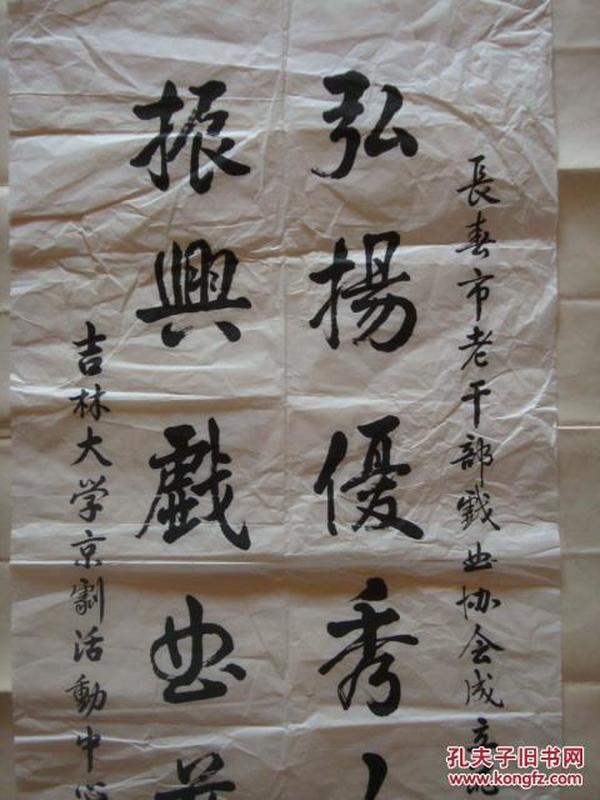 長春市老干部戲曲协会成立
弘揚優秀
振興戲曲
吉林大学京劇活動中心
孔夫子旧书网
www.kongfz.com